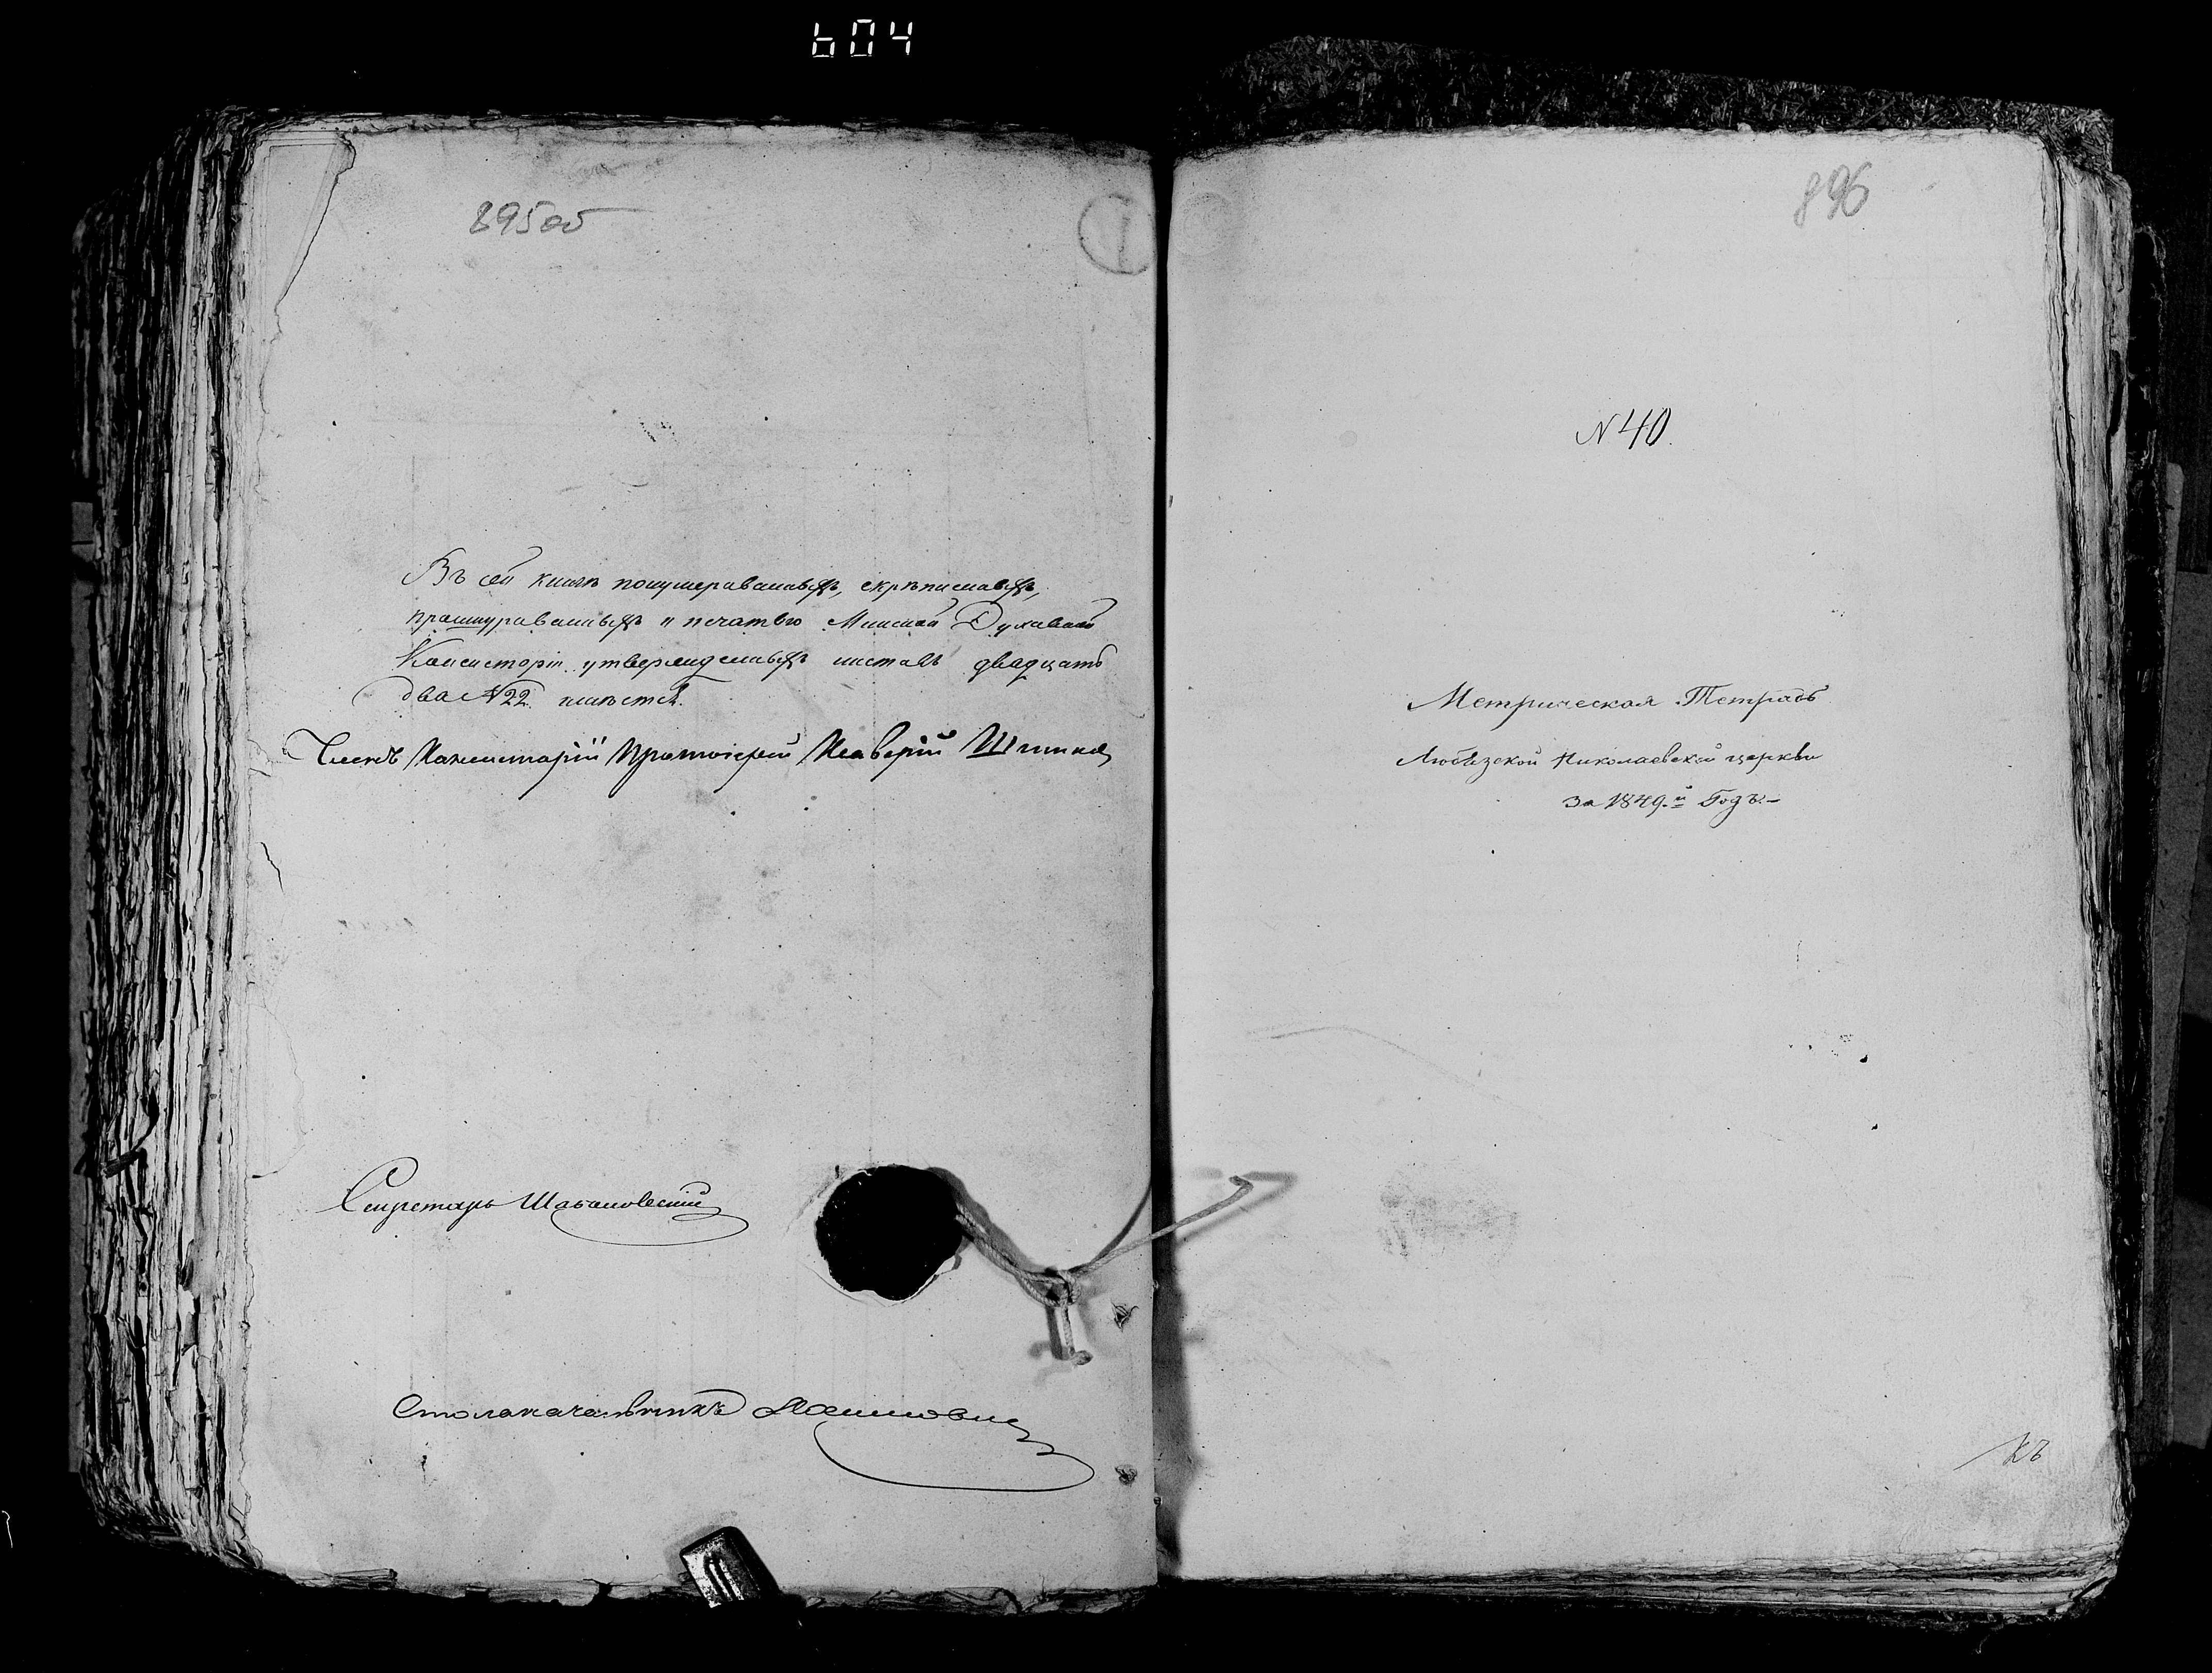 604
895об
1
Въ сей книгѣ понумерованныхъ, скрѣпленныхъ,
прошнурованныхъ и печатью Минской Духовной
Консисторіи утвержденныхъ листовъ двадцать
два N22. имѣется.
Членъ Консисторіи Протоіерей
Секретарь
Столоначальникъ
896
N 40.
Метрическая Тетрадь
Любязской Николаевской церкви
за 1849.й Годъ.-